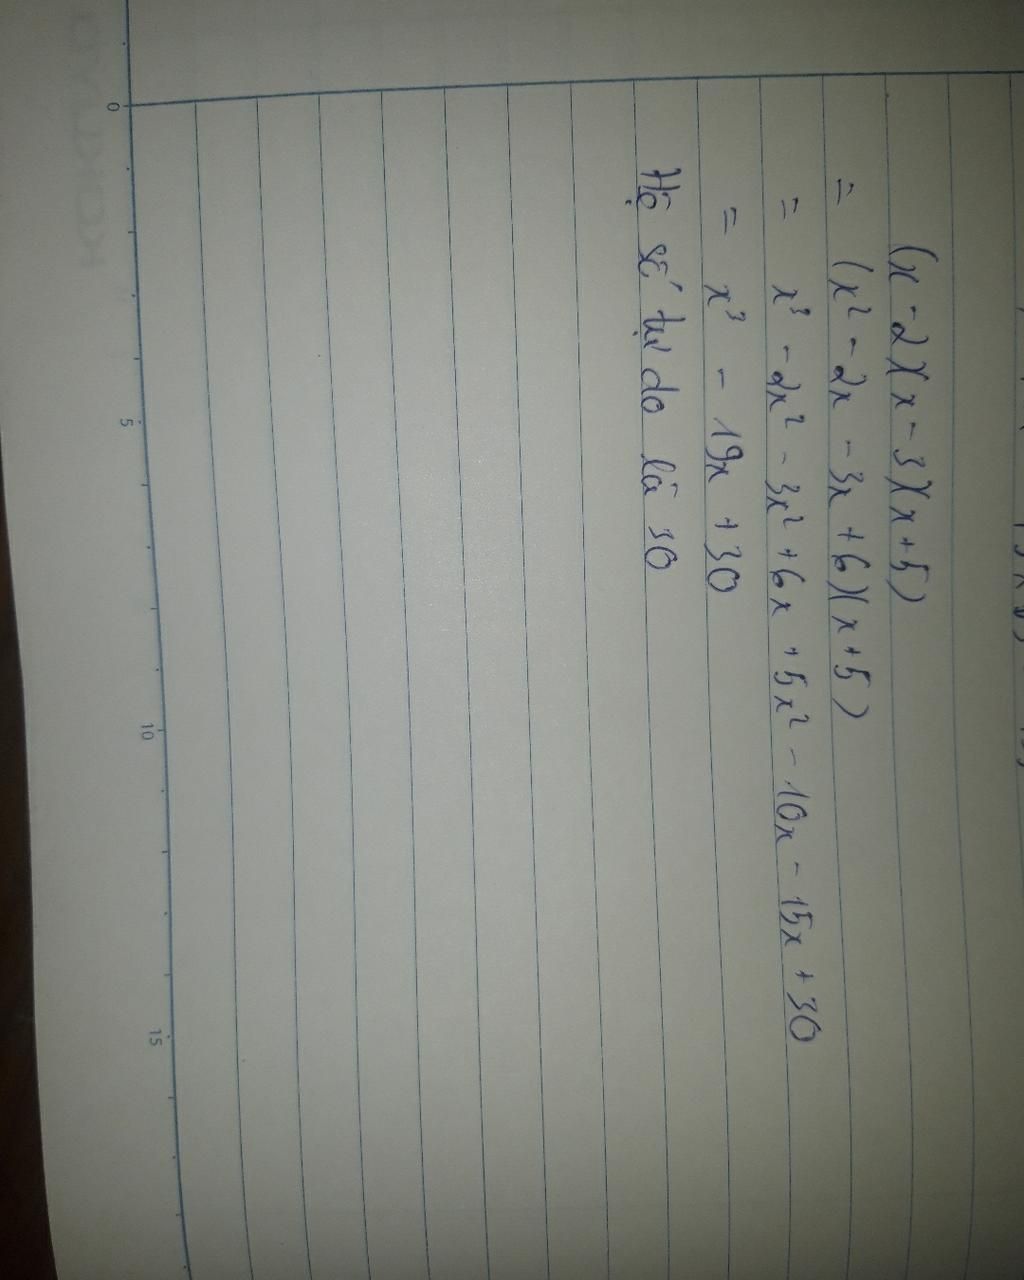 (x - 2)(x - 3)(x + 5)
= (x² - 2x - 3x + 6)(x + 5)
= x³ - 2x² - 3x² + 6x + 5x² - 10x - 15x + 30
= x³ - 19x + 30
Hệ số tự do là 30
0 5 10 15